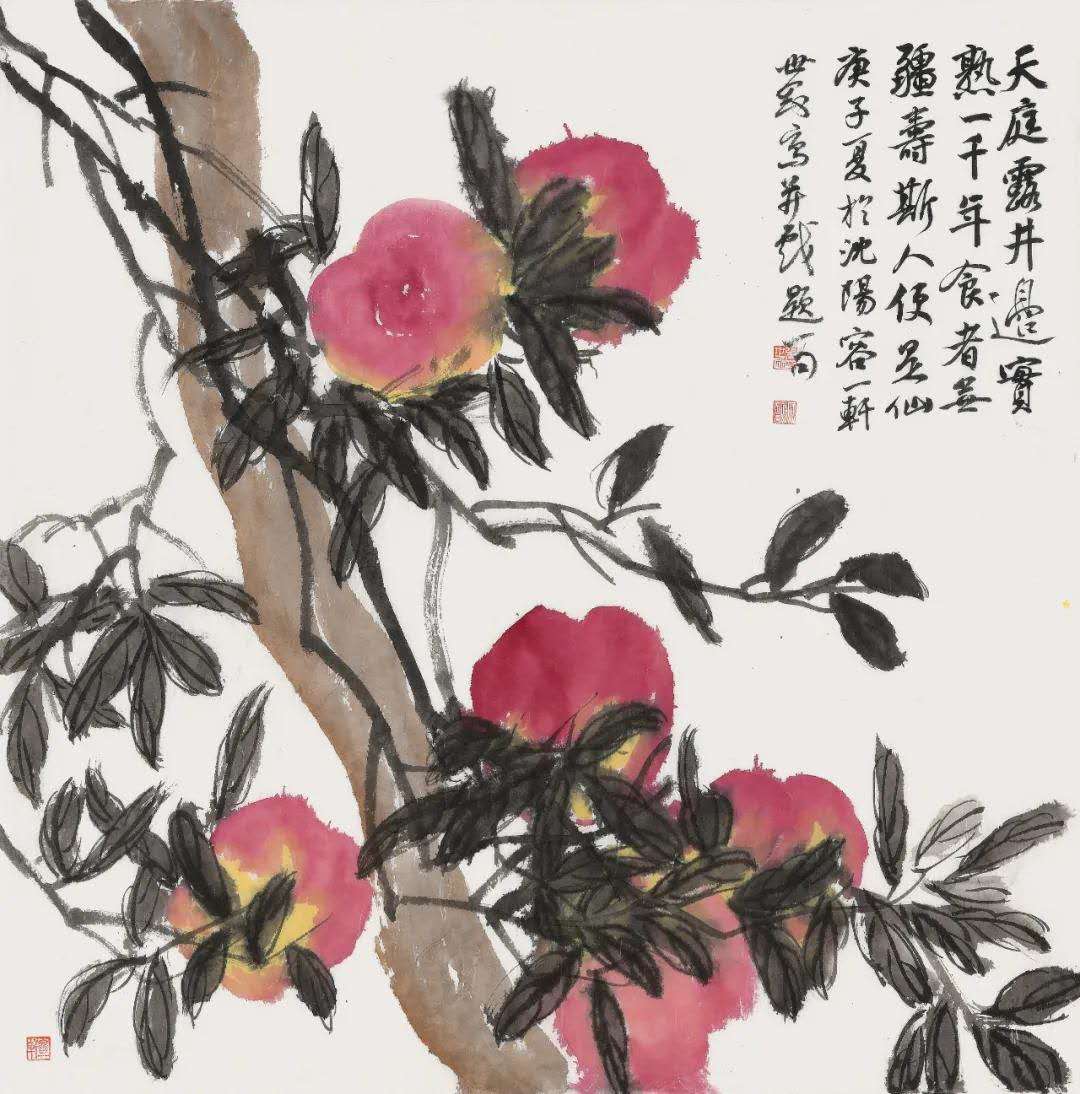 天庭露井邊實
熟一千年食者無
疆壽斯人便是仙
庚子夏於沈陽容一軒
世寫并戲題